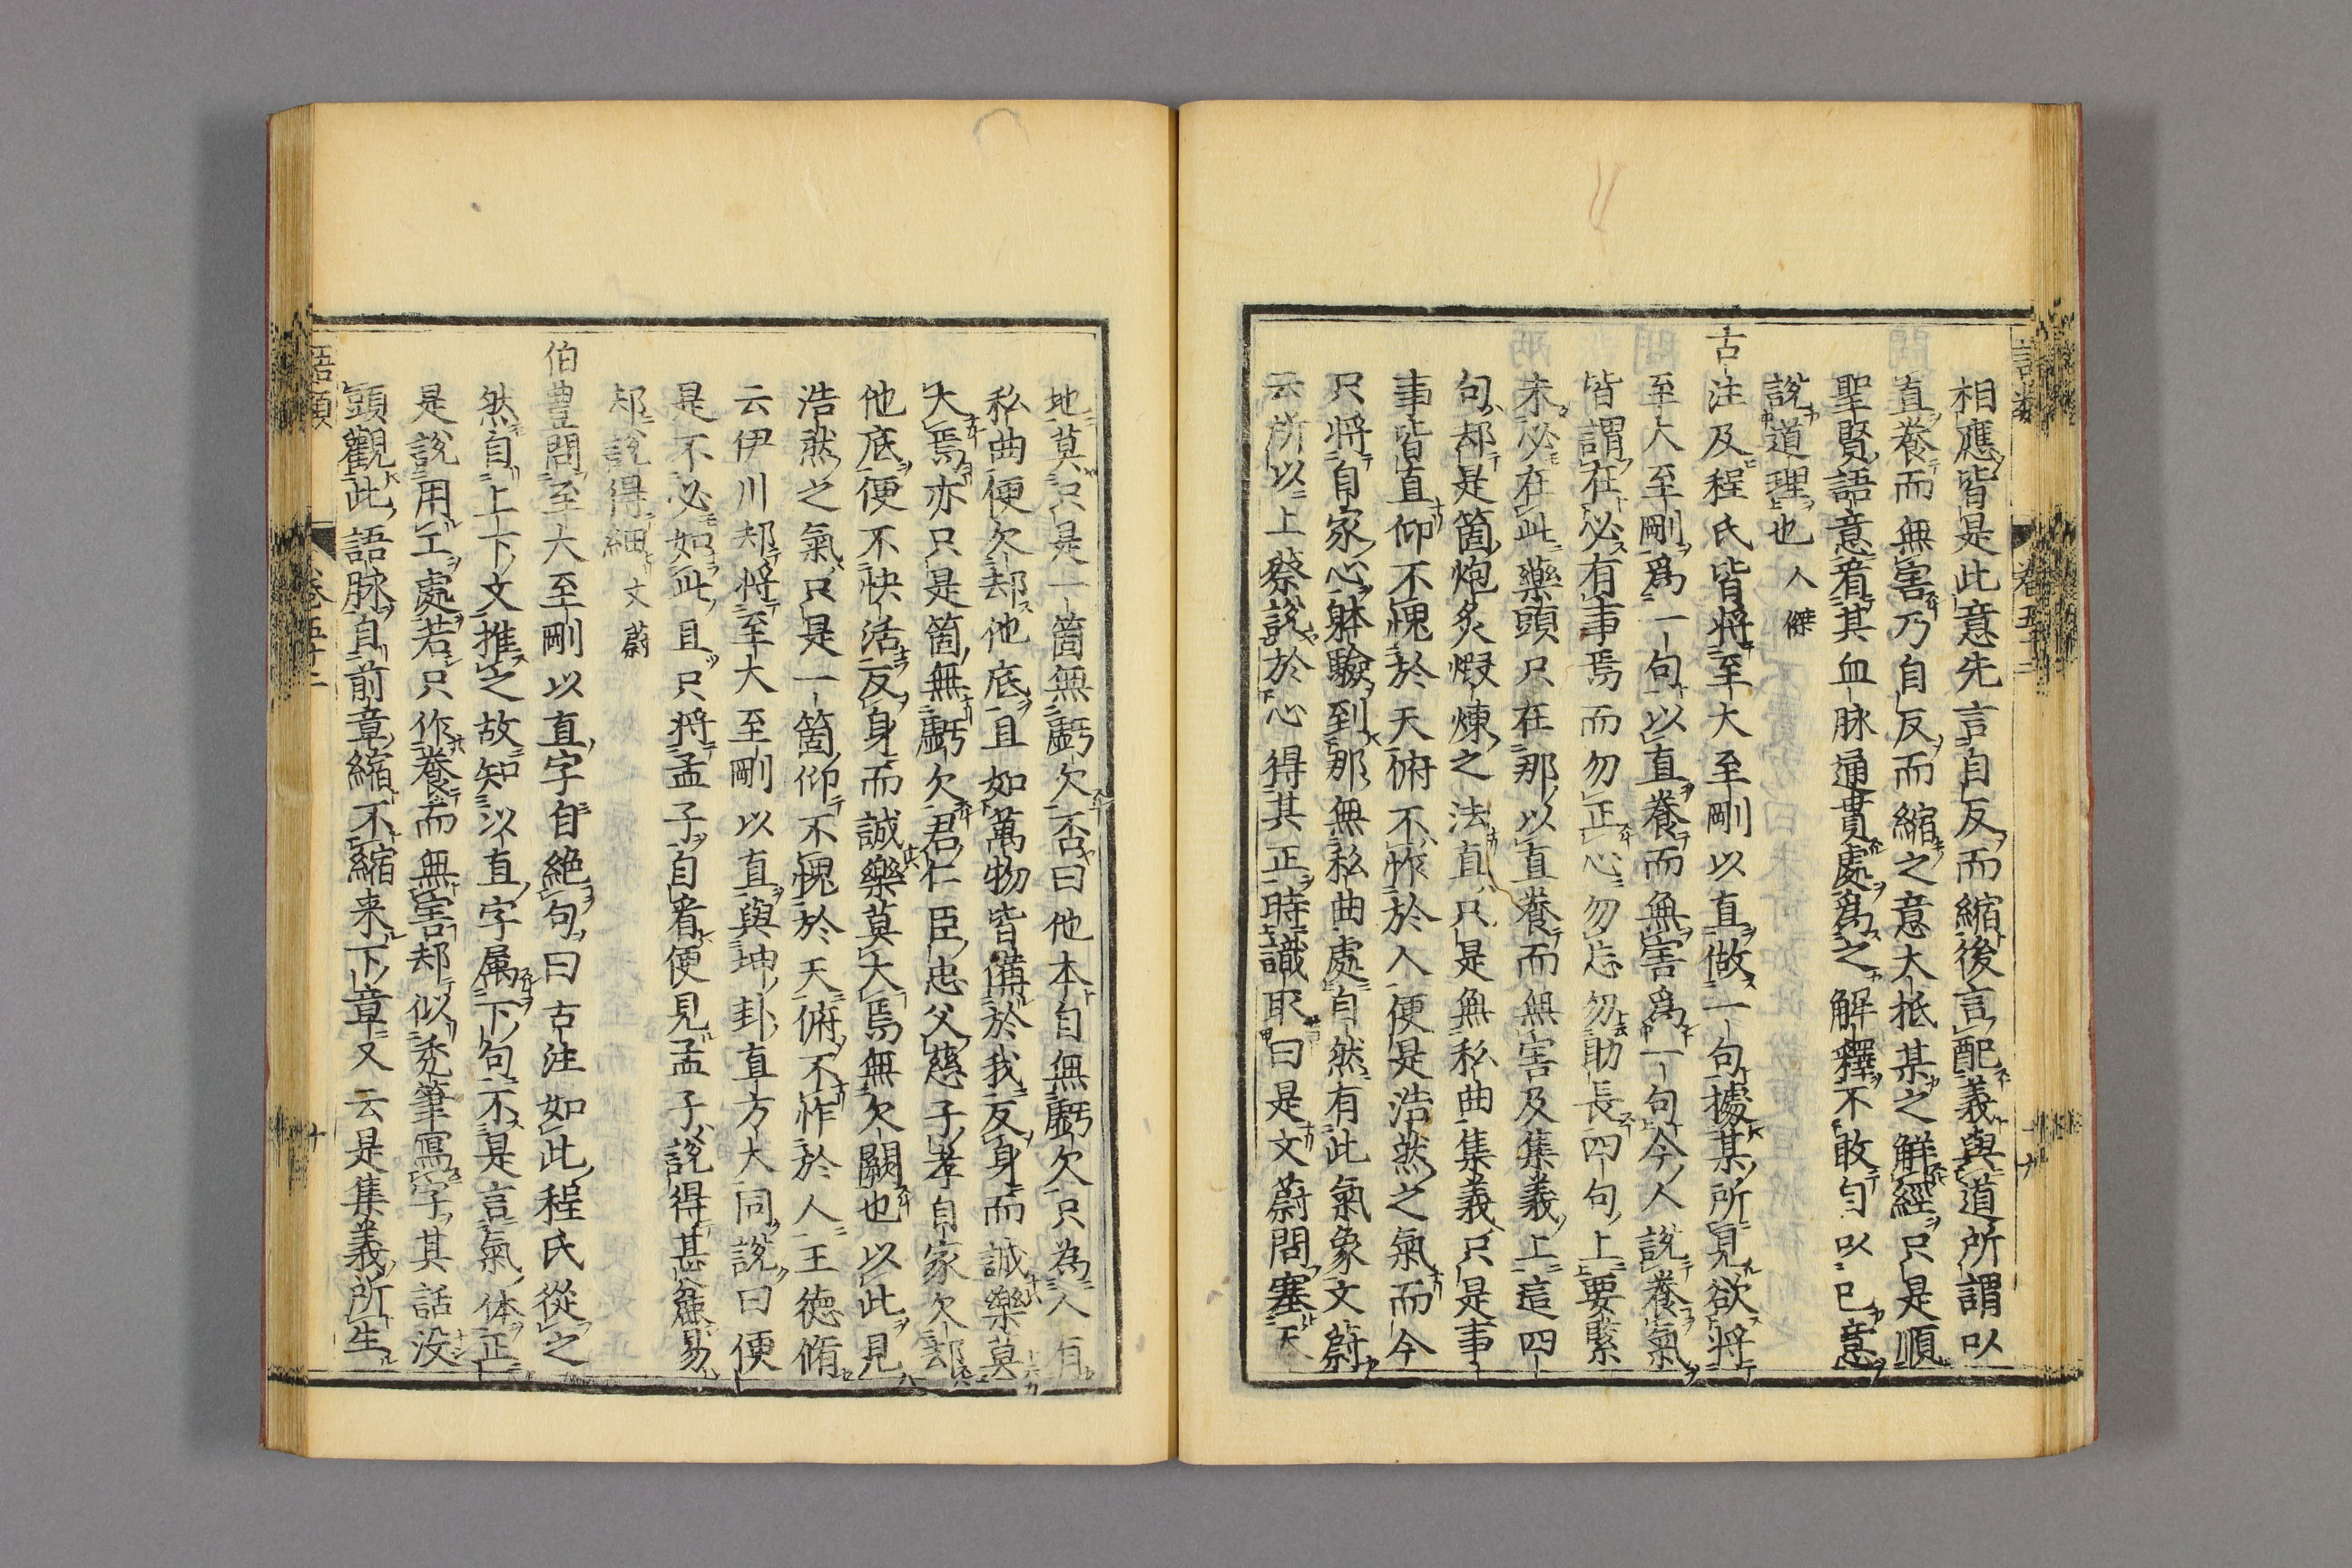 相應皆是此意先言自反而縮後言配義與道所謂以
直養而無害乃自反而縮之意大抵某之解經只是順
聖賢語意看其血脉通貫處爲之解釋不敢自以已意
說道理也人傑
古注及程氏皆將至大至剛以直做一句據某所見欲將
至大至剛爲一句以直養而無害爲一句今人說養氣
皆謂在必有事焉而勿正心勿忘勿助長四句上要緊
未必在此藥頭只在那以直養而無害及集義上這四
句却是箇炮炙煆煉之法直只是無私曲集義只是事
事皆直仰不愧於天俯不怍於人便是浩然之氣而今
只將自家心躰驗到那無私曲處自然有此氣象文蔚
云所以上蔡說於心得其正時識取曰是文蔚問塞天
地莫只是一箇無虧欠否曰他本自無虧欠只為人有
私曲便欠却他底且如萬物皆備於我反身而誠樂莫
大焉亦只是箇無虧欠君仁臣忠父慈子孝自家欠却
他底便不快活反身而誠樂莫大焉無欠闕也以此見
浩然之氣只是一箇仰不愧於天俯不怍於人王德脩
云伊川却將至大至剛以直與坤卦直方大同說曰便
是不必如此且只將孟子自看便見孟子說得甚麄易
却說得細文蔚
伯豊問至大至剛以直字自絶句曰古注如此程氏從之
然自上下文推之故知以直字属下句不是言氣体正
是說用工處若只作養而無害却似禿筆寫字其話没
頭觀此語脉自前章縮不縮来下章又云是集義所生
語類
卷五十二
十